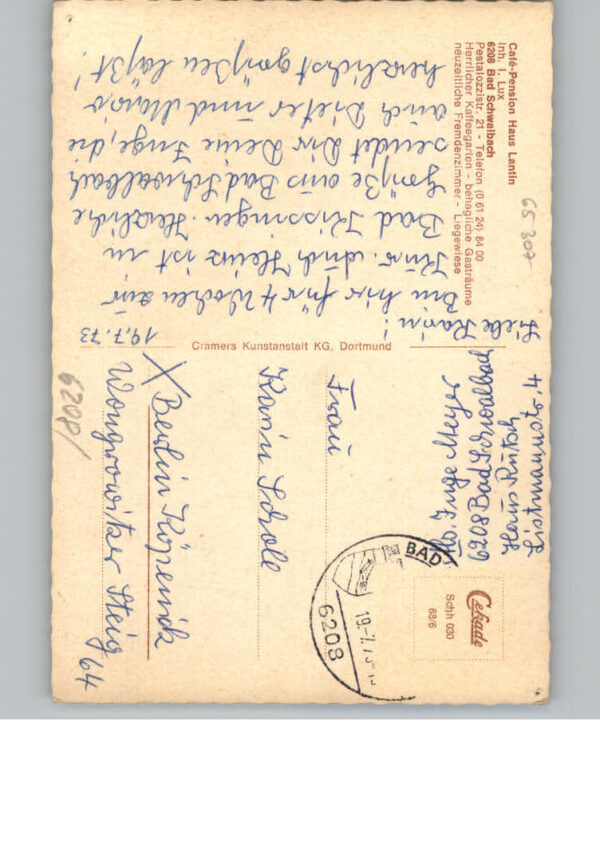 Café-Pension Haus Lantin
Inh. I. Lux
6208 Bad Schwalbach
Pestalozzistr. 21 - Telefon (0 61 24) 84 00
Herrlicher Kaffeegarten - behagliche Gasträume
neuzeitliche Fremdenzimmer - Liegewiese
65 307
19.7.73
Liebe Karin!
Bin hier für 4 Wochen zur
Kur. Auch Heinz ist in
Bad Kissingen. Herzliche
Grüße aus Bad Schwalbach
sendet Dir Deine Inge, die
auch Dieter und Mario
herzlichst grüßen läßt!
Cramers Kunstanstalt KG, Dortmund
Inge
6208 Bad Schwalbach
Haus
4
Cekade
Schh 030
68/6
BAD
19.-7.7
6208
Frau
Karin Schole
X Berlin Köpenick
Wongrowitzer Steig
64
6208/